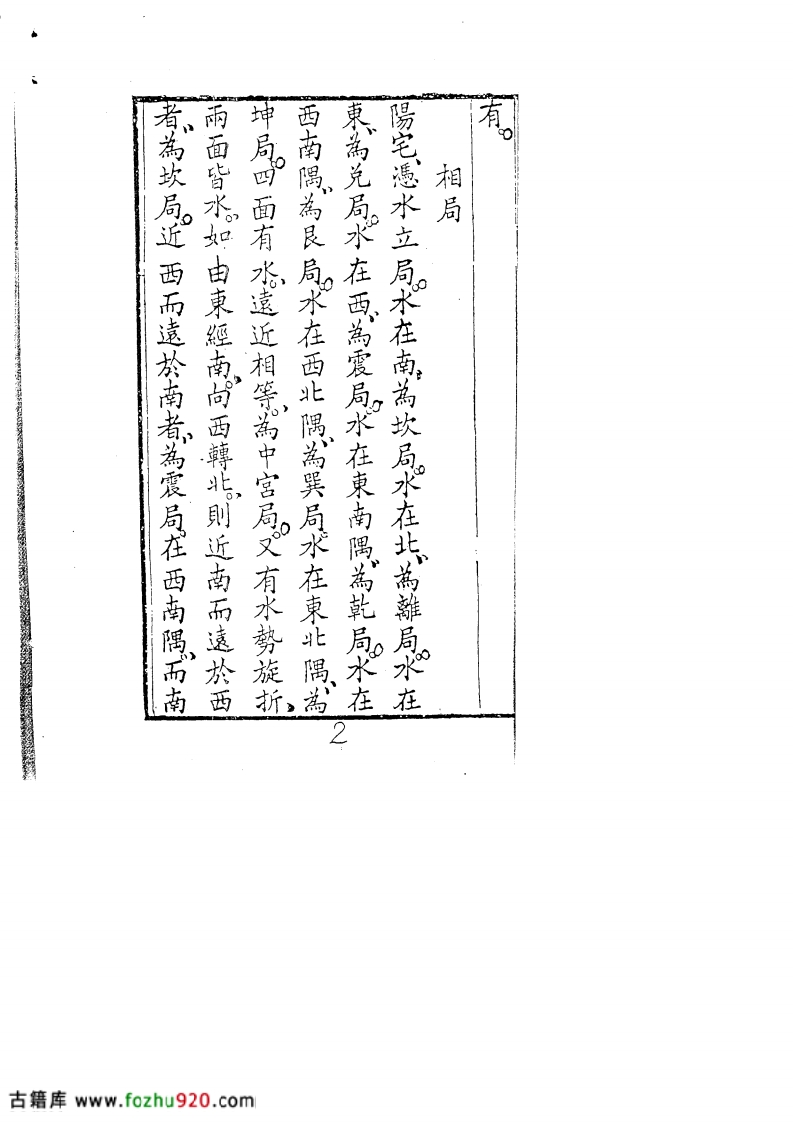 有。
相局
陽宅、憑水立局。水在南、為坎局。水在北、為離局。水在
東、為兌局。水在西、為震局。水在東南隅、為乾局。水在
西南隅、為艮局。水在西北隅、為巽局。水在東北隅、為
坤局。四面有水。遠近相等、為中宮局。又有水勢旋折、
兩面皆水。如由東經南、向西轉北、則近南而遠於西
者、為坎局。近西而遠於南者、為震局。在西南隅、而南
2
古籍库 www.fozhu920.com